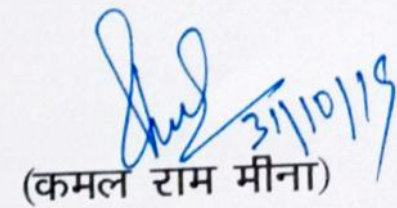 31/10/19
(कमल राम मीना)